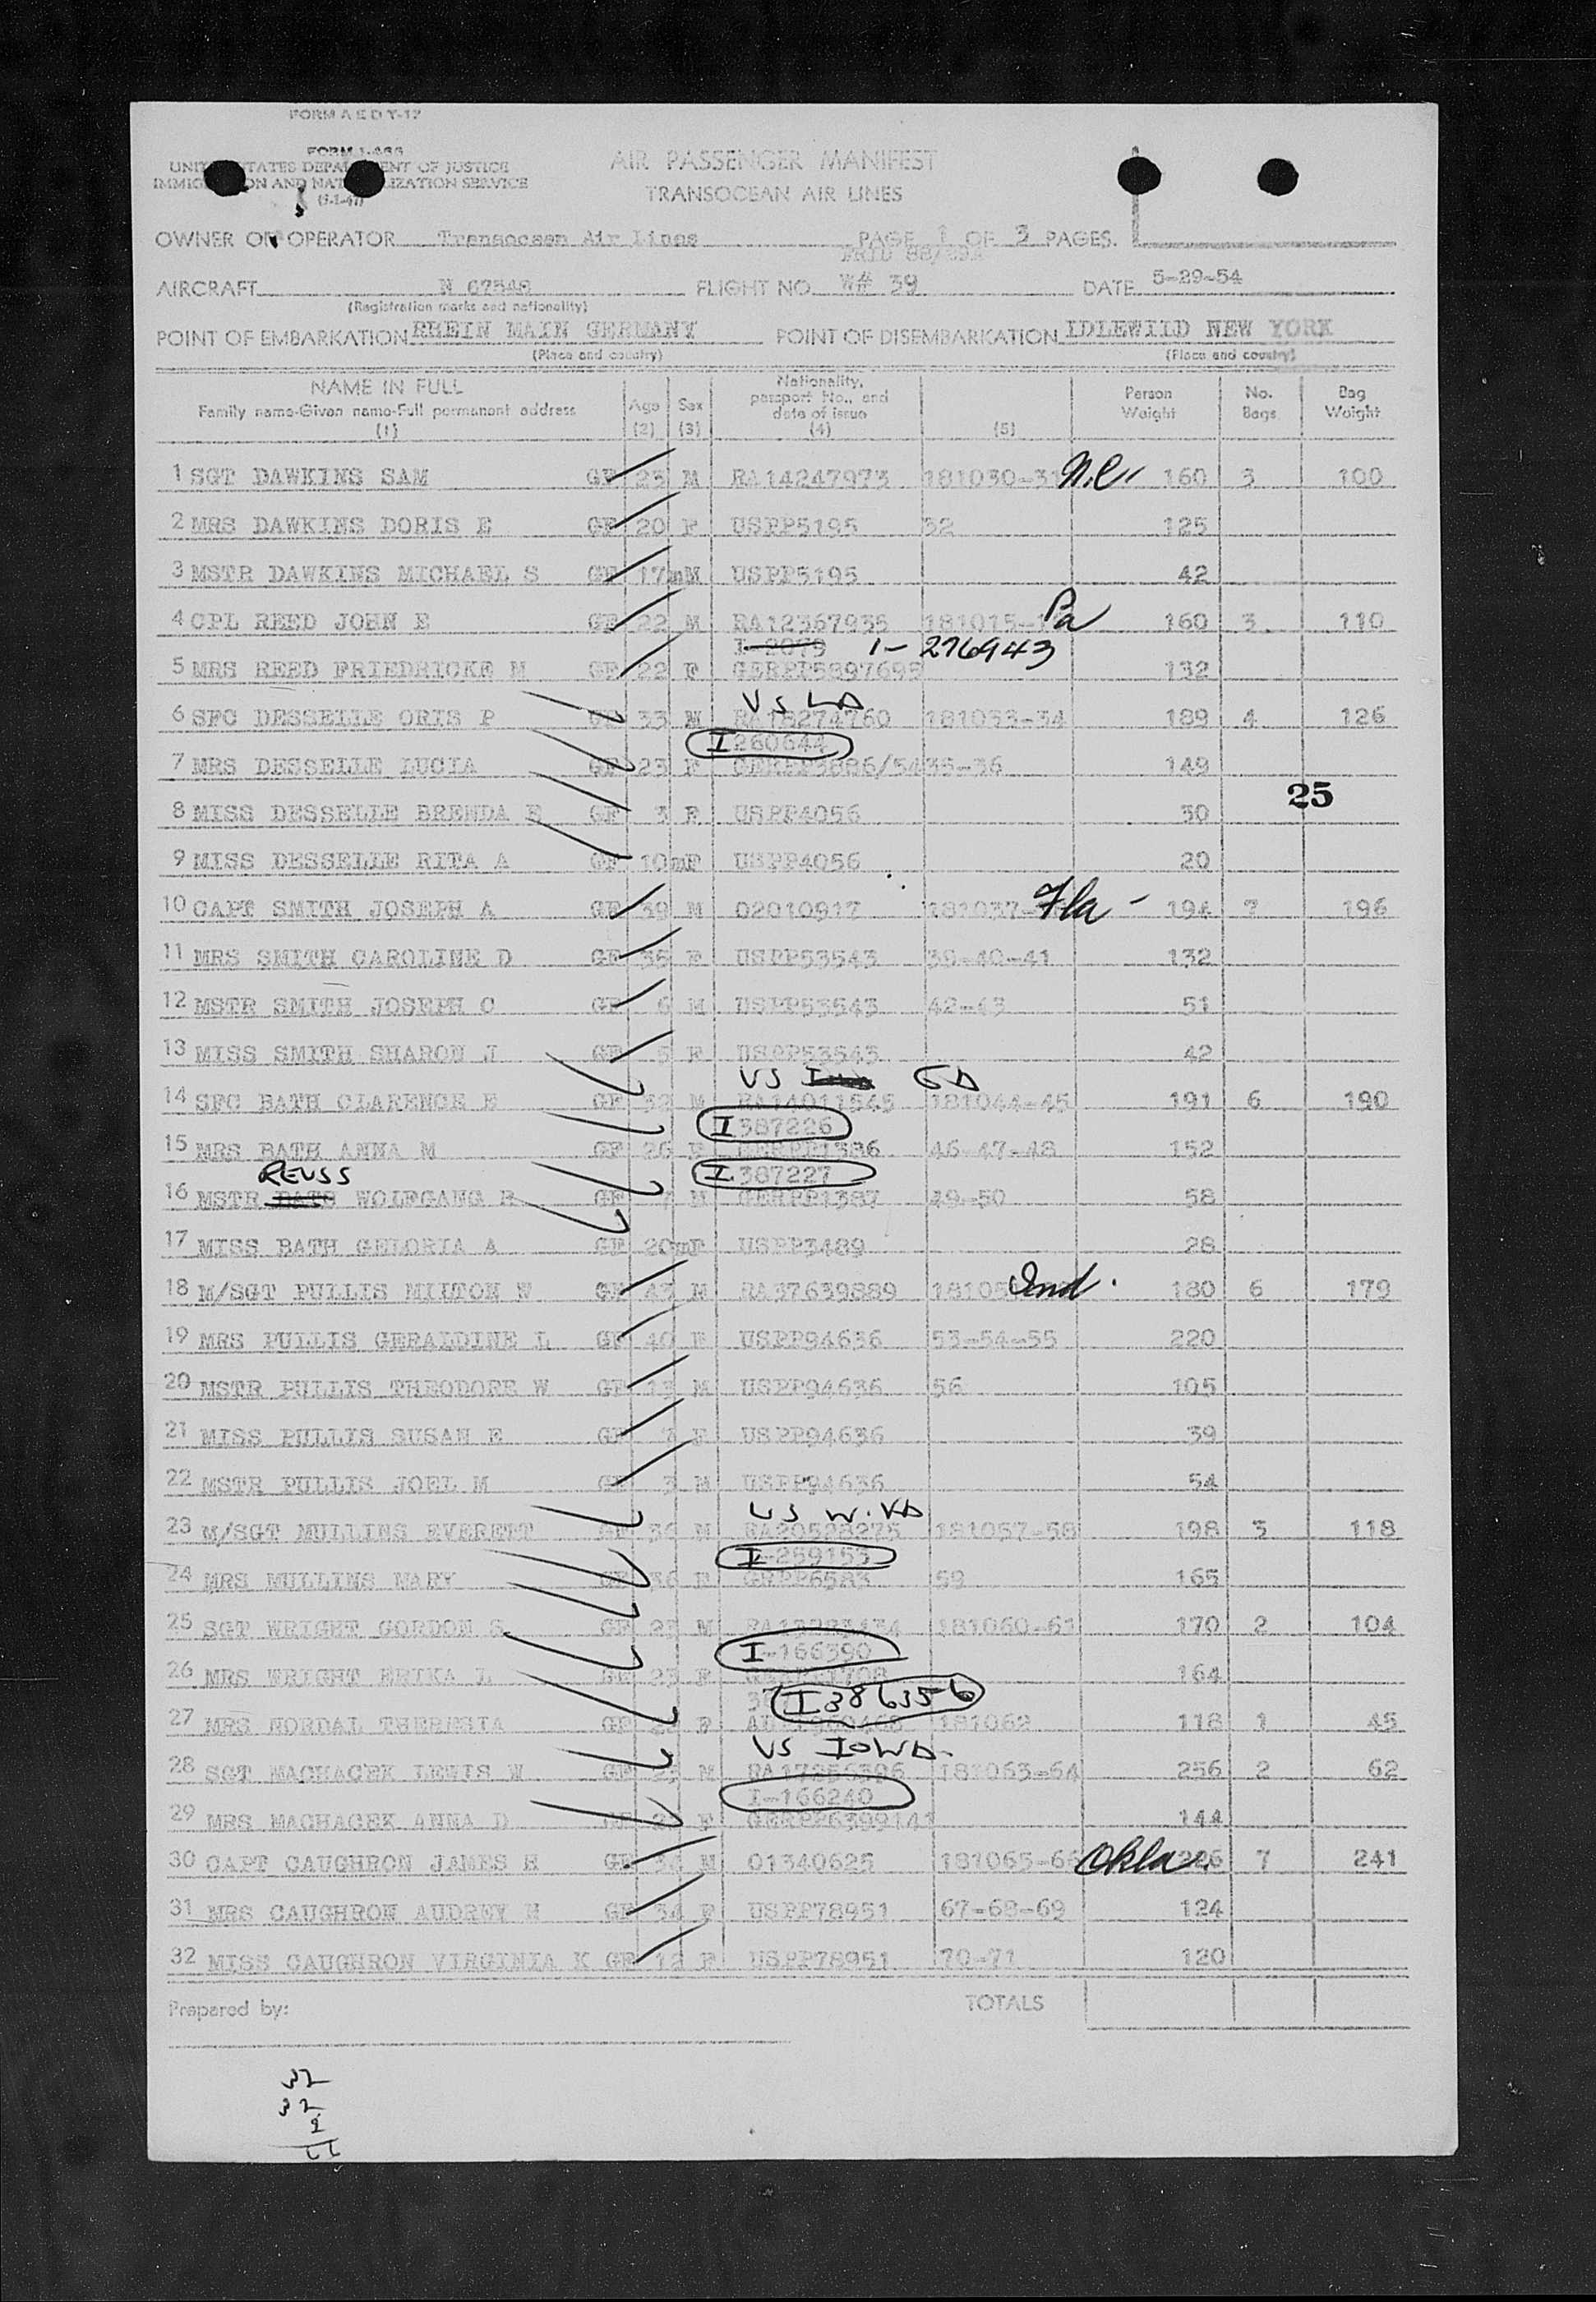 FORM A E D Y-17
FORM I-466
UNITED STATES DEPARTMENT OF JUSTICE
IMMIGRATION AND NATURALIZATION SERVICE
AIR PASSENGER MANIFEST
TRANSOCEAN AIR LINES
OWNER OR OPERATOR Transocean Air Lines PAGE 1 OF 3 PAGES.
AIRCRAFT N 67546 FLIGHT NO. W# 39 DATE 5-29-54
(Registration marks and nationality)
POINT OF EMBARKATION RHEIN MAIN GERMANY POINT OF DISEMBARKATION IDLEWILD NEW YORK
(Place and country) (Place and country)
NAME IN FULL Age Sex Nationality, passport No., and date of issue Person Weight No. Bags Bag Weight
Family name-Given name-Full permanent address
(1) (2) (3) (4) (5)
1 SGT DAWKINS SAM GF 23 M RA14247973 181030-31 N.C. 160 3 100
2 MRS DAWKINS DORIS E GF 20 F USPP5195 32 125
3 MSTR DAWKINS MICHAEL S GF 17m M USPP5195 42
4 CPL REED JOHN E GF 22 M RA12367935 181015- Pa 160 3 110
I-2079 1-276943
5 MRS REED FRIEDRICKE M GF 22 F GERPP5897695 132
US LA
6 SFC DESSELLE ORIS P GF 33 M RA18274760 181033-34 189 4 126
I 260644
7 MRS DESSELLE LUCIA GF 23 F GERPP3886/54 35-36 149
25
8 MISS DESSELLE BRENDA E GF 3 F USPP4056 30
9 MISS DESSELLE RITA A GF 10m F USPP4056 20
10 CAPT SMITH JOSEPH A GF 39 M 02010917 181037- Fla- 194 7 196
11 MRS SMITH CAROLINE D GF 36 F USPP53543 39-40-41 132
12 MSTR SMITH JOSEPH C GF 6 M USPP53543 42-43 51
13 MISS SMITH SHARON J GF 5 F USPP53543 42
US GA
14 SFC BATH CLARENCE E GF 32 M RA14011545 181044-45 191 6 190
I 387226
15 MRS BATH ANNA M GF 26 F GERPP1386 46-47-48 152
REUSS I 387227
16 MSTR WOLFGANG R GF 7 M GERPP1387 49-50 58
17 MISS BATH GELORIA A GF 20m F USPP3489 28
18 M/SGT PULLIS MILTON W GF 43 M RA37639889 18105 Ind. 180 6 179
19 MRS PULLIS GERALDINE L GF 40 F USPP94636 53-54-55 220
20 MSTR PULLIS THEODORE W GF 13 M USPP94636 56 105
21 MISS PULLIS SUSAN E GF 7 F USPP94636 39
22 MSTR PULLIS JOEL M GF 3 M USPP94636 54
US W.VA
23 M/SGT MULLINS EVERETT GF 36 M RA20528275 181057-58 198 3 118
I-259153
24 MRS MULLINS MARY GF 36 F GERPP6583 59 165
25 SGT WRIGHT GORDON S GF 23 M 181060-61 170 2 104
I-166390
26 MRS WRIGHT ERIKA L GF 23 F 164
I 386356
27 MRS NORDAL THERESIA GF F 181062 118 1 45
US IOWA.
28 SGT MACHACEK LEWIS W GF 23 M RA17256396 181063-64 256 2 62
I-166240
29 MRS MACHACEK ANNA D GF F GERPP6399141 144
30 CAPT CAUGHRON JAMES H GF 38 M 01340625 181065-66 Okla. 226 7 241
31 MRS CAUGHRON AUDREY M GF 34 F USPP78951 67-68-69 124
32 MISS CAUGHRON VIRGINIA K GF 12 F USPP78951 70-71 120
Prepared by: TOTALS
32
32
2
66